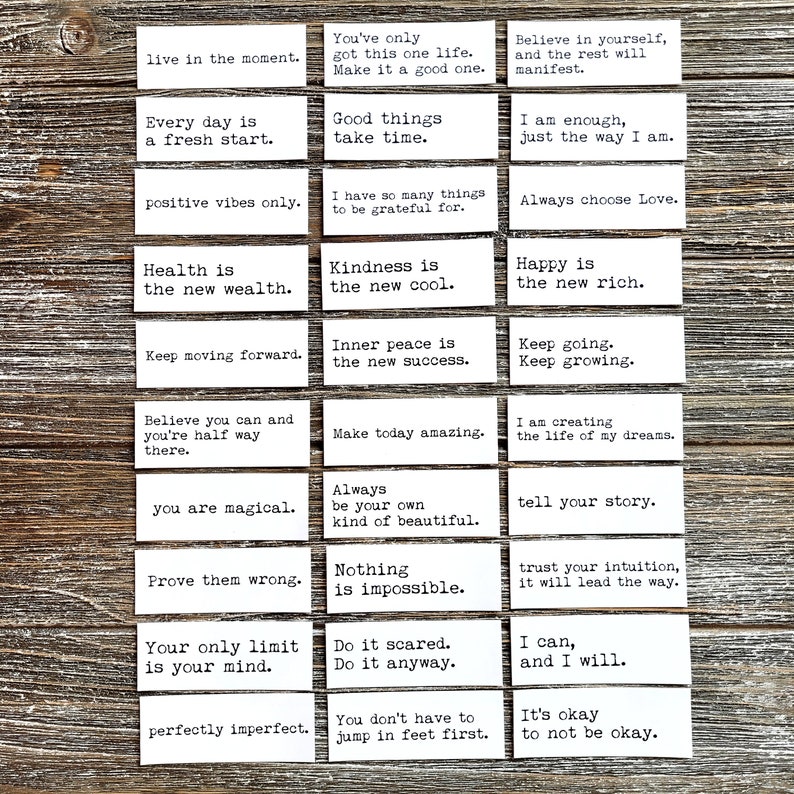 live in the moment.
You've only
got this one life.
Make it a good one.
Believe in yourself,
and the rest will
manifest.
Every day is
a fresh start.
Good things
take time.
I am enough,
just the way I am.
positive vibes only.
I have so many things
to be grateful for.
Always choose Love.
Health is
the new wealth.
Kindness is
the new cool.
Happy is
the new rich.
Keep moving forward.
Inner peace is
the new success.
Keep going.
Keep growing.
Believe you can and
you're half way
there.
Make today amazing.
I am creating
the life of my dreams.
you are magical.
Always
be your own
kind of beautiful.
tell your story.
Prove them wrong.
Nothing
is impossible.
trust your intuition,
it will lead the way.
Your only limit
is your mind.
Do it scared.
Do it anyway.
I can,
and I will.
perfectly imperfect.
You don't have to
jump in feet first.
It's okay
to not be okay.